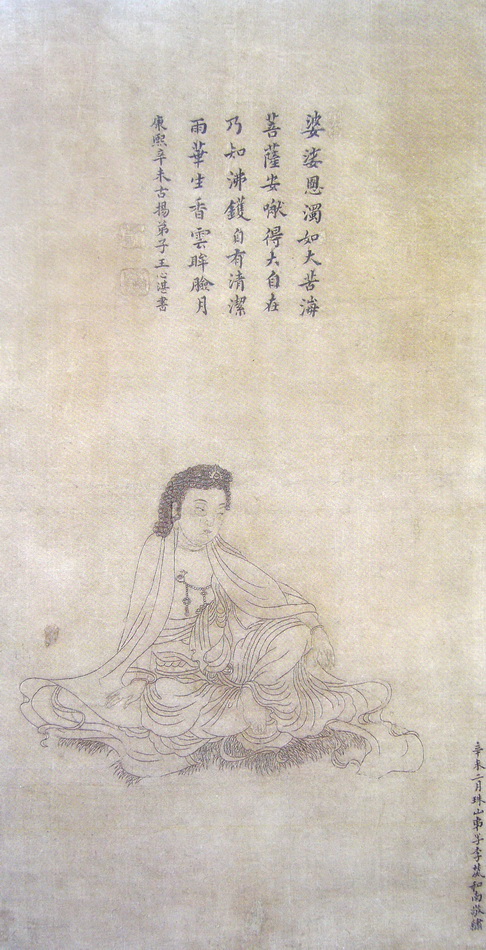 娑婆恩濁如大苦海
菩薩安啾得大自在
乃知沸鑊自有清潔
雨華生香雲眸臉月
康熙辛未古揚弟子王心湛書
辛未二月珠山弟子李 和南敬繡